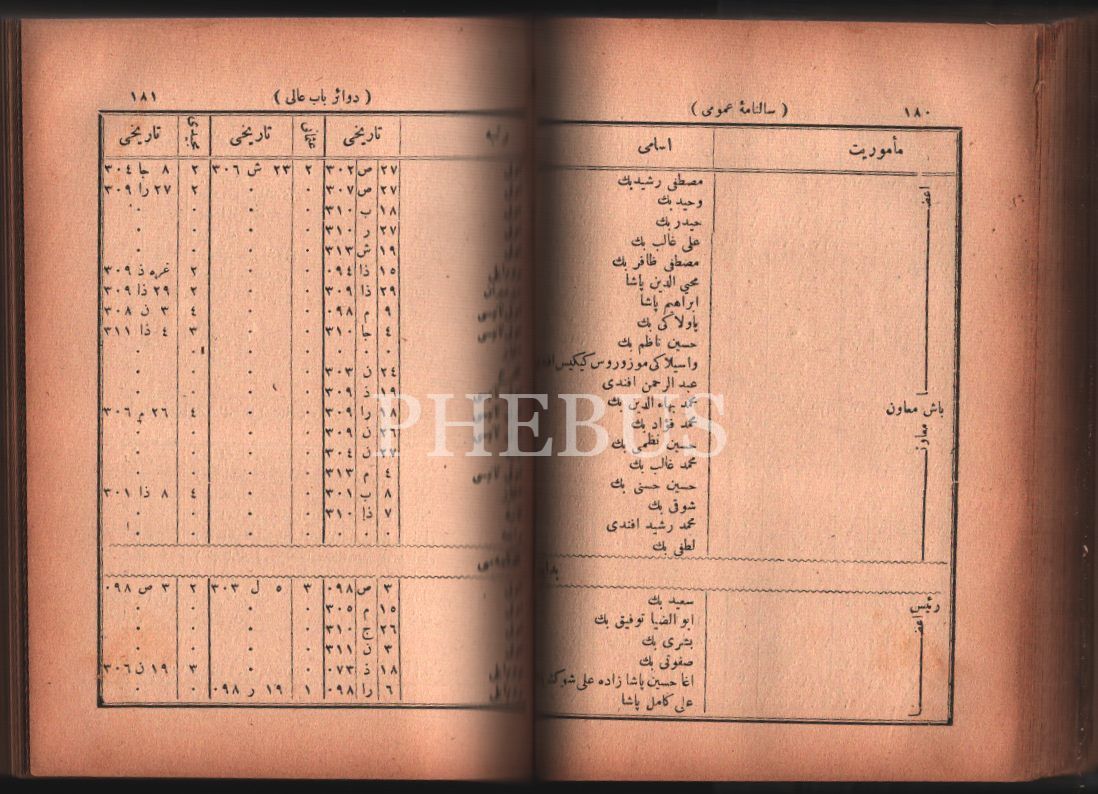 ١٨٠ ( سالنامهٔ عمومی )
مأموریت اسامی
اعضا
مصطفی رشید بك
وحید بك
حیدر بك
علی غالب بك
مصطفی ظافر بك
محیی الدین پاشا
ابراهیم پاشا
پاولاكی بك
حسین ناظم بك
واسیلاكی موزوروس كیكیس
عبد الرحمن افندی
باش معاون محمد بهاء الدین بك
معاون محمد فؤاد بك
حسین نظمی بك
محمد غالب بك
حسین حسنی بك
شوقی بك
محمد رشید افندی
لطفی بك
رئیس سعید بك
اعضا ابو الضیا توفیق بك
بشری بك
صفوتی بك
اغا حسین پاشا زاده علی شوكت
علی كامل پاشا
( دوائر باب عالی ) ١٨١
تاریخی عثمانی تاریخی مجیدی تاریخی
٢٧ ص ٣٠٢ ٢ ٢٣ ش ٣٠٦ ٢ ٨ جا ٣٠٤
٢٧ ص ٣٠٧ ٠ ٠ ٢ ٢٧ را ٣٠٩
١٨ ب ٣١٠ ٠ ٠ ٠ ٠
٢٧ ر ٣١٠ ٠ ٠ ٠ ٠
١٩ ش ٣١٣ ٠ ٠ ٠ ٠
١٥ ذا ٠٩٤ ٠ ٠ ٢ غره ذ ٣٠٩
٢٩ ذا ٣٠٩ ٠ ٠ ٢ ٢٩ ذا ٣٠٩
٩ م ٠٩٨ ٠ ٠ ٤ ٣ ن ٣٠٨
٤ جا ٣١٠ ٠ ٠ ٣ ٤ ذا ٣١١
٠ ٠ ٠ ٠ ٠ ٠ ٠
٢٤ ن ٣٠٣ ٠ ٠ ٠ ٠
١٩ ذ ٣٠٩ ٠ ٠ ٠ ٠
١٨ را ٣٠٩ ٠ ٠ ٤ ٢٦ م ٣٠٦
٢٦ ن ٣٠٩ ٠ ٠ ٠ ٠
٢٧ ن ٣٠٤ ٠ ٠ ٠ ٠
٤ م ٣١٣ ٠ ٠ ٠ ٠
٨ ب ٣٠١ ٠ ٠ ٤ ٨ ذا ٣٠١
٧ ذا ٣١٠ ٠ ٠ ٠ ٠
٠ ٠ ٠ ٠ ٠ ٠ ٠
٣ ص ٠٩٨ ٣ ٥ ل ٣٠٣ ٢ ٣ ص ٠٩٨
١٥ م ٣٠٥ ٠ ٠ ٠ ٠
٢٦ ج ٣١٠ ٠ ٠ ٠ ٠
٣ ن ٣١١ ٠ ٠ ٠ ٠
١٨ ذ ٠٧٣ ٠ ٠ ٣ ١٩ ن ٣٠٦
٦ را ٠٩٨ ١ ١٩ ر ٠٩٨ ٠ ٠
PHEBUS